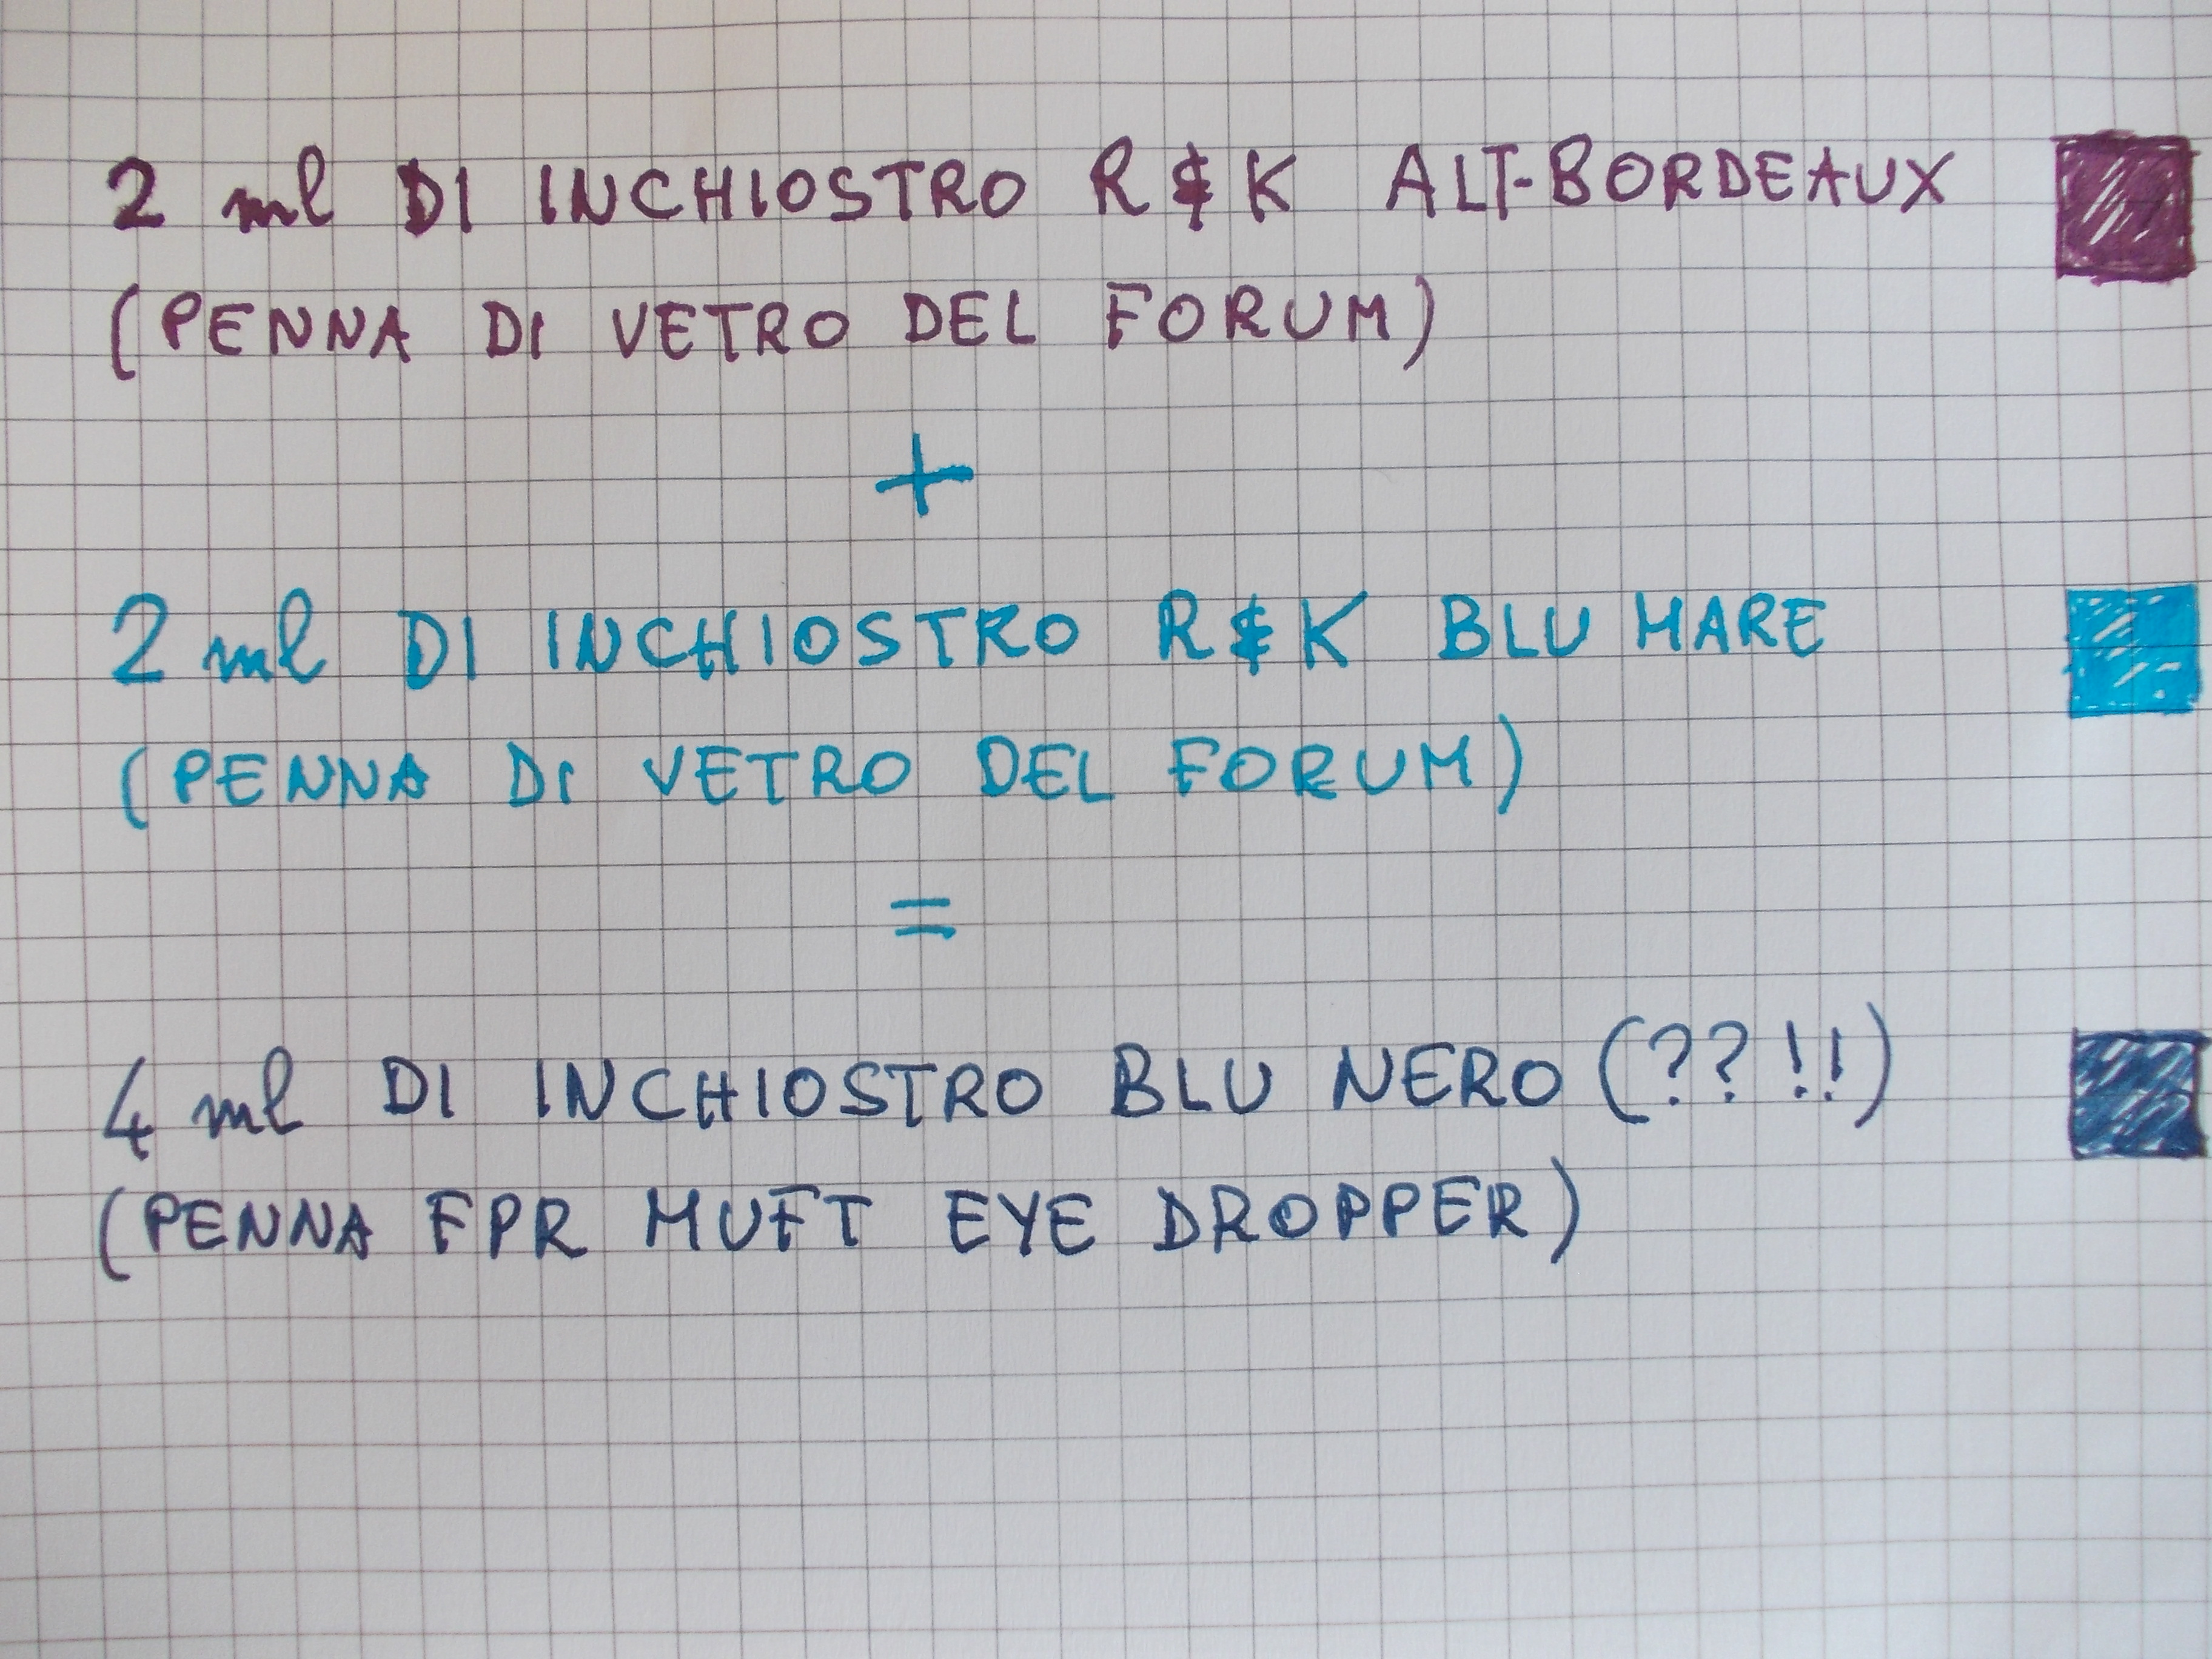 2 ml DI INCHIOSTRO R & K ALT-BORDEAUX
(PENNA DI VETRO DEL FORUM)
+
2 ml DI INCHIOSTRO R & K BLU MARE
(PENNA DI VETRO DEL FORUM)
=
4 ml DI INCHIOSTRO BLU NERO (??!!)
(PENNA FPR MUFT EYE DROPPER)